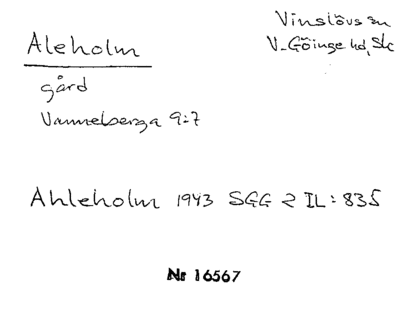 Aleholm
Vinslövs sn
V. Göinge hd, Sk
gård
Vannebergа 9:7
Ahleholm 1943 SGG 2 II: 835
Nr 16567